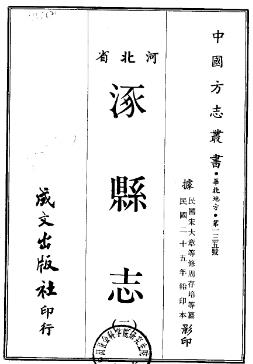 中國方志叢書·華北地方·第一三五號
據民國宋大章等修周存培等纂
民國二十五年鉛印本影印
河北省
涿縣志
(一)
成文出版社印行